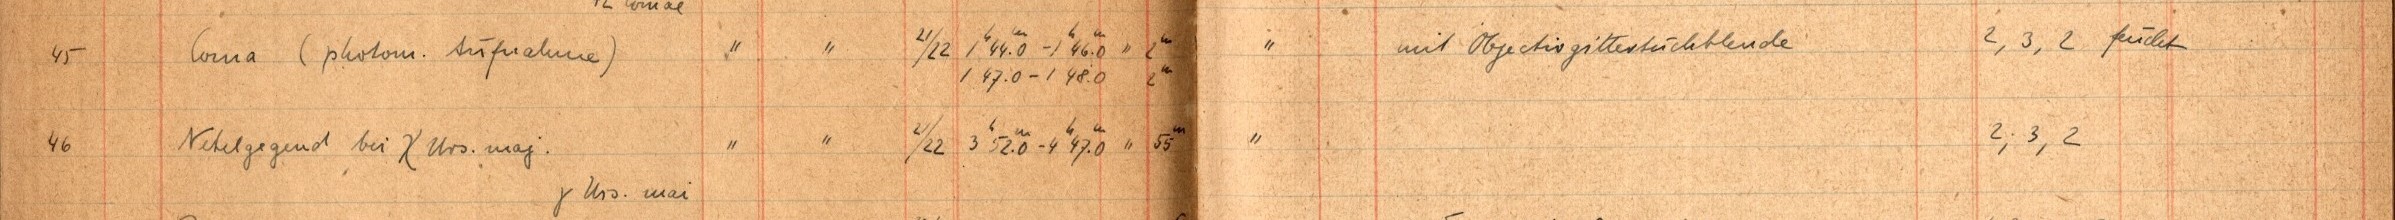 12 Comae
45 Coma (photom. Aufnahme) " " 21/22 1h 44m.0 - 1h 46m.0 " 2m " mit Objectivgitterstückblende 2, 3, 2 feucht
1 47.0 - 1 48.0 2m
46 Nebelgegend bei χ Urs. maj. " " 21/22 3h 52m.0 - 4h 47m.0 " 55m " 2, 3, 2
γ Urs. mai